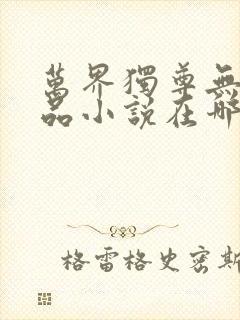 萬界獨尊無
品小說在哪
格雷格史密斯